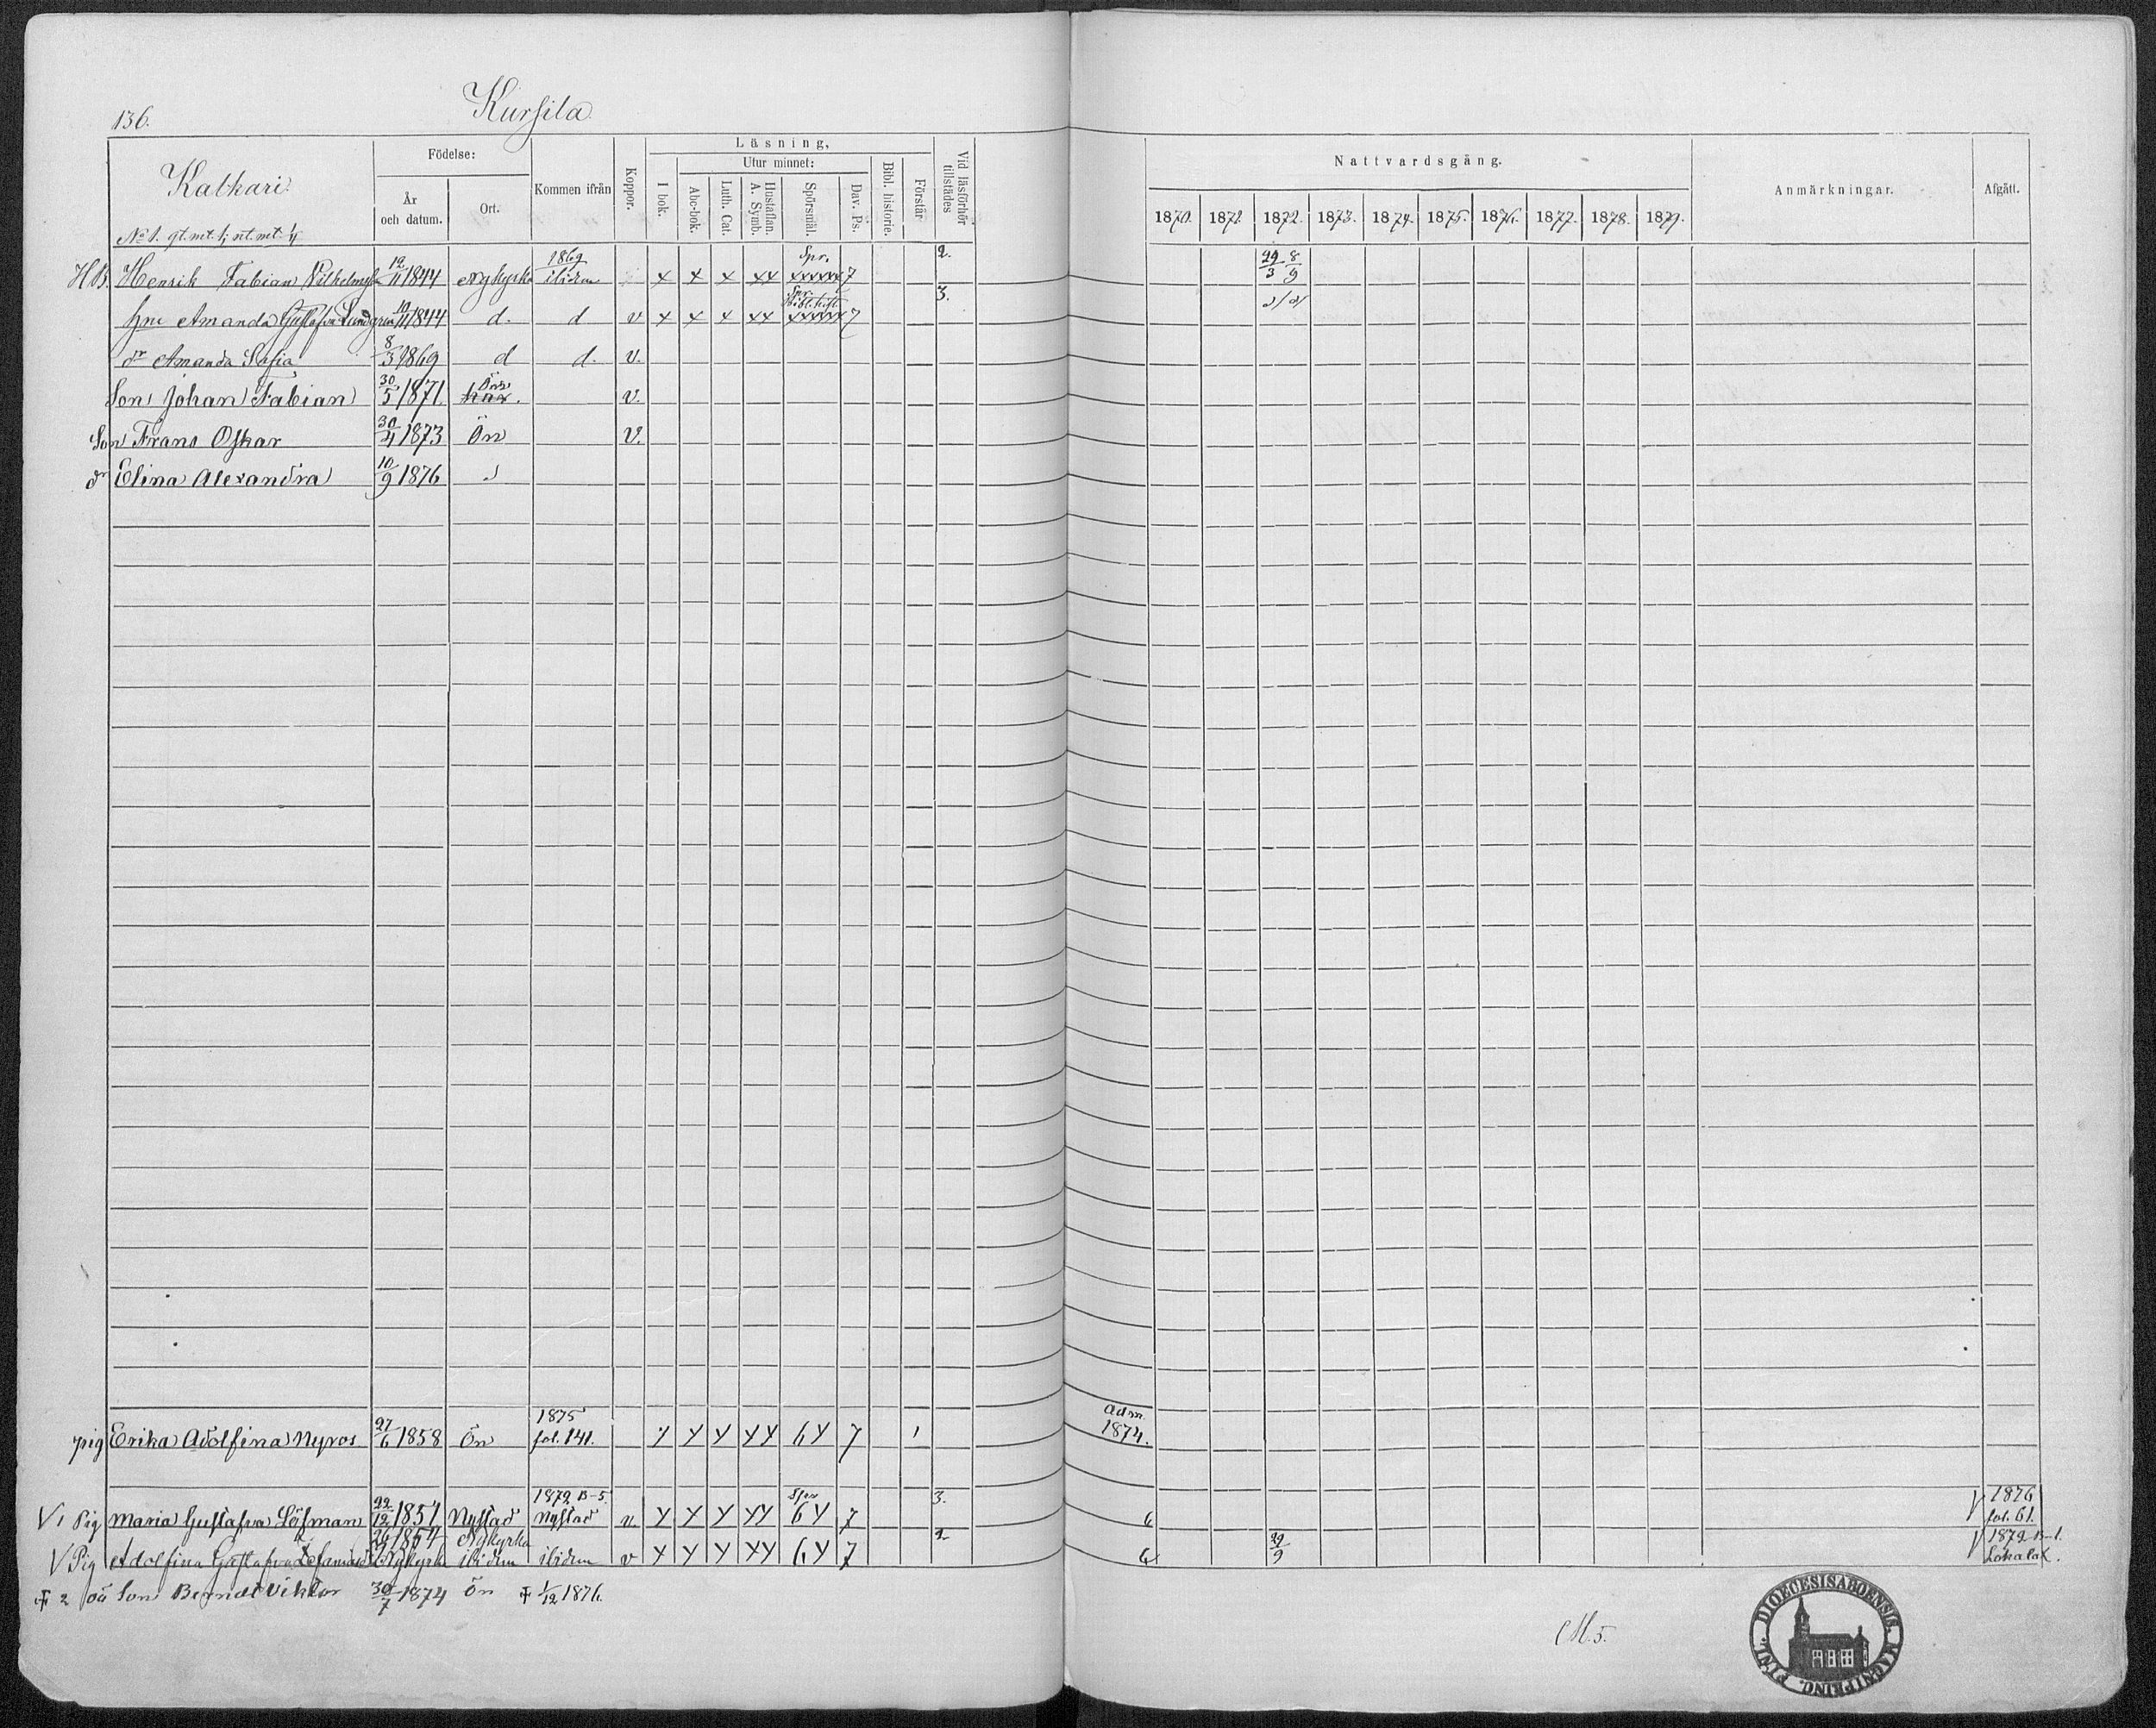 136.
Kursila
Kalkari
Födelse:
År och datum.
Ort.
Kommen ifrån
Koppor.
Läsning,
I bok.
Utur minnet:
Abc-bok.
Luth. Cat.
Hustaflan. A. Symb.
Spörsmål.
Dav. Ps.
Bibl. historie.
Förstår
Vid läsförhör tillstädes
Nattvardsgång.
1870. 1871. 1872. 1873. 1874. 1875. 1876. 1877. 1878. 1879.
Anmärkningar.
Afgått.
No 1. gt. mt. 1; nt. mt. 1/4
HB. Henrik Fabian Vilhelmsson 12/11 1844 Nykyrka 1869 ibidem x x x xx Spr. xxxxxx 7 2. 29/3 8/9
Hu Amanda Gustafva Lundgren 10/11 1844 d. d v x x x xx Spr. xxxxxx 7 3. d/d
dr Amanda Sofia 8/3 1869 d d. v.
Son Johan Fabian 30/5 1871 Ön v.
Son Frans Oskar 30/4 1873 Ön v.
dr Elina Alexandra 10/9 1876 d
pig Erika Adolfina Nyros 27/6 1858 Ön 1875 fol. 141. x x x xx 6x 7 1 Adm. 1874.
V Pig Maria Gustafva Löfman 22/12 1851 Nystad 1872 B-5. Nystad v x x x xx 6x 7 3. G V 1876 fol. 61.
V Pig Adolfina Gustafva 26/ Nykyrka ibidem ibidem v x x x xx 6x 7 2 G 29/9 V 1872 B-1. Lokalax.
‡ 2 oä Son Berndt Viktor 30/7 1874 Ön ‡ 1/12 1876.
M. 5.
DIOECESIS ABOENSIS. MAGNI PRINC. FINL.